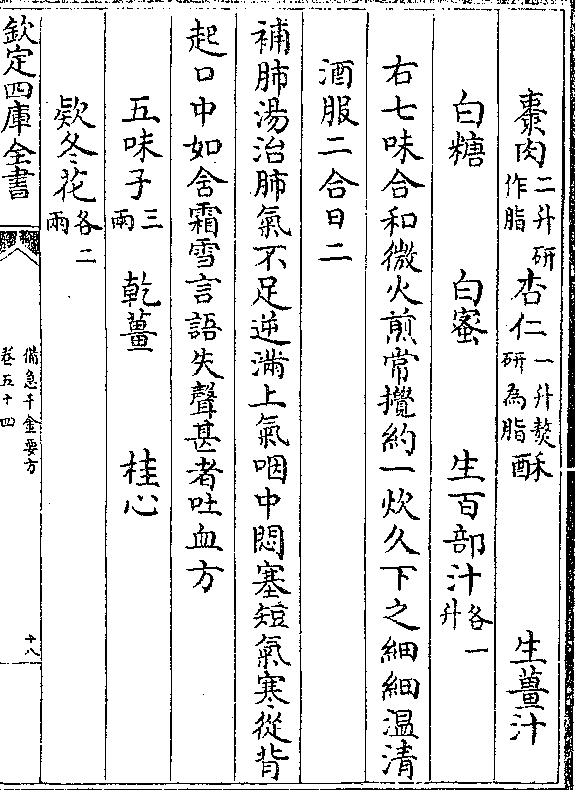 棗肉二升研作脂 杏仁一升熬研為脂 酥 生薑汁
白糖 白蜜 生百部汁各一升
右七味合和微火煎常攪約一炊久下之細細温清
酒服二合日二
補肺湯治肺氣不足逆滿上氣咽中悶塞短氣寒從背
起口中如含霜雪言語失聲甚者吐血方
五味子三兩 乾薑 桂心
款冬花各二兩
欽定四庫全書
備急千金要方
卷五十四
十八